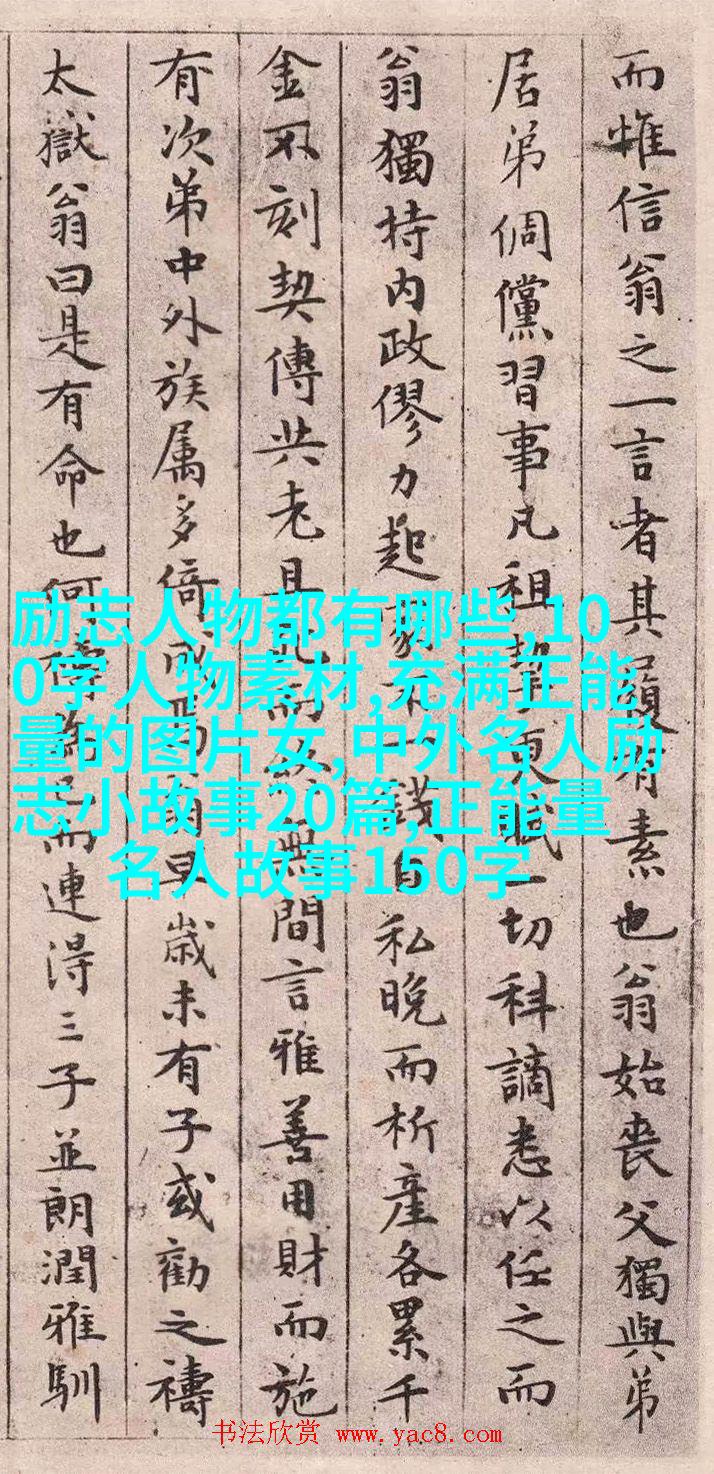 而惟信翁之一言者其履有素也翁始丧父獨與弟
居弟倜儻習事凡租更賦一切科謫悉以任之而
翁獨持内政僇力起不錢自私晚而析產各累千
金不刻契傳共老且而無間言雅善用財而施
有次弟中外族属多倚早歲未有子或勸之禱
太嶽翁曰是有命也何而連得三子並朗潤雅馴
励志人物都有哪些,10
0字人物素材,充满正能
量的图片女,中外名人励
志小故事20篇,正能量
名人故事150字
书法欣赏 www.yac8.com